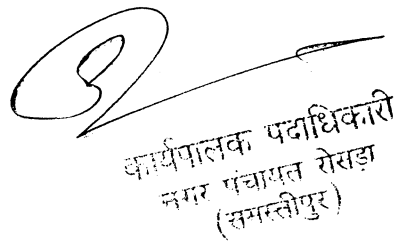 कार्यपालक पदाधिकारी
नगर पंचायत रोसड़ा
(समस्तीपुर)